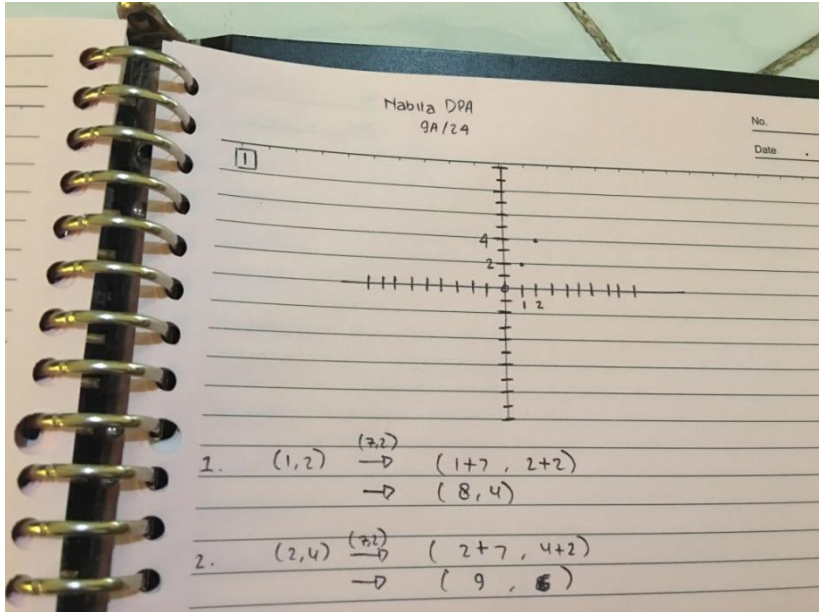 Nabila DPA
9A/24
No.
Date
1
4
2
1 2
(7,2)
1. (1,2) → (1+7 , 2+2)
→ (8,4)
(7,2)
2. (2,4) → ( 2+7 , 4+2)
→ ( 9 , 6)